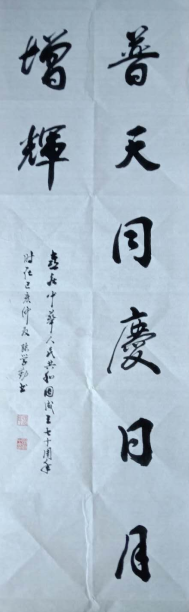 普天同慶日月
增輝
喜飛中華人民共和國成立七十周年
時在己亥仲夏
書